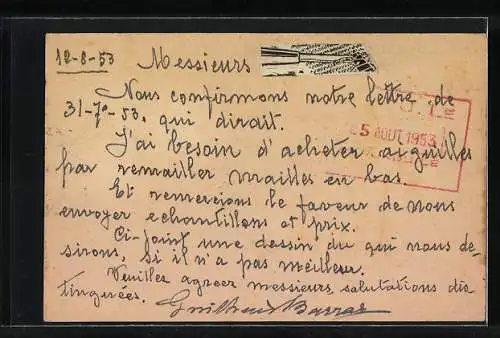 12-8-53
Messieurs
Nous confirmons notre lettre de
31-7º-53, qui dirait.
J'ai besoin d'acheter aiguilles
par remailler mailles en bas.
Et remercions le faveur de nous
envoyer echantillons et prix.
Ci-joint une dessin du qui nous de-
sirons, si il n'a pas meilleur.
Veuilles agreer messieurs, salutations dis-
tinguées.
LE
5 AOUT 1953
LE